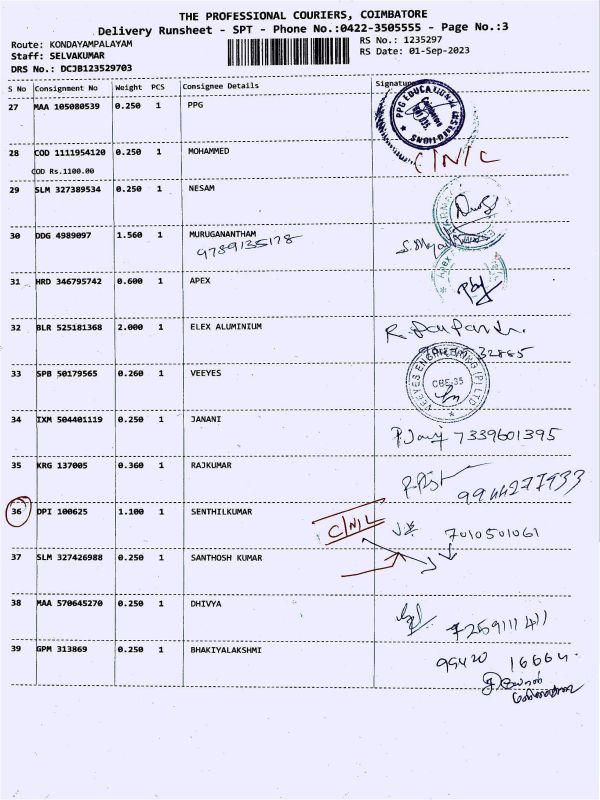 THE PROFESSIONAL COURIERS, COIMBATORE
Delivery Runsheet - SPT - Phone No.:0422-3505555 - Page No.:3
Route: KONDAYAMPALAYAM
RS No.: 1235297
Staff: SELVAKUMAR
RS Date: 01-Sep-2023
DRS No.: DCJB123529703
S No Consignment No Weight PCS Consignee Details Signature
27 MAA 105080539 0.250 1 PPG
PPG EDUCATIONAL INSTITUTIONS
28 COD 1111954120 0.250 1 MOHAMMED C/N/L
COD Rs.1100.00
29 SLM 327389534 0.250 1 NESAM
30 DDG 4989097 1.560 1 MURUGANANTHAM
9789135178
31 HRD 346795742 0.600 1 APEX
Apex
32 BLR 525181368 2.000 1 ELEX ALUMINIUM
32865
33 SPB 50179565 0.260 1 VEEYES
VEEYES ENGINEERING (P) LTD
CBE-35
34 IXM 504401119 0.250 1 JANANI
7339601395
35 KRG 137005 0.360 1 RAJKUMAR
9944277933
36 DPI 100625 1.100 1 SENTHILKUMAR C/N/L
7010501061
37 SLM 327426988 0.250 1 SANTHOSH KUMAR
38 MAA 570645270 0.250 1 DHIVYA
39 GPM 313869 0.250 1 BHAKIYALAKSHMI
99420 16664